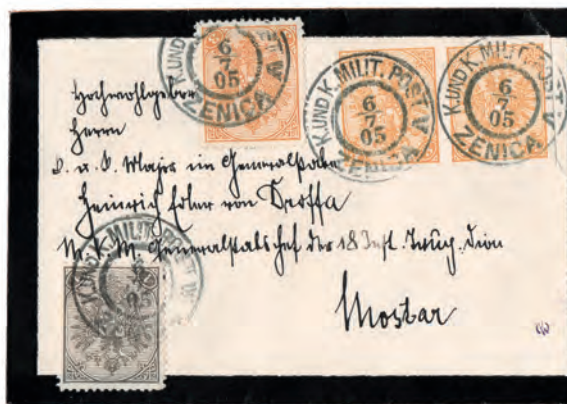 K. UND K. MILIT. POST V
6
7
05
ZENICA
K. UND K. MILIT. POST V
6
7
05
ZENICA
K. UND K. MILIT. POST V
6
7
05
ZENICA
Hochwohlgeboren
Herrn
k. u. k. Major im Generalstabe
Heinrich Edler von
Generalstabschef der 18 Inft. Trup. Dion
K. UND K. MILIT. POST V
05
Mostar